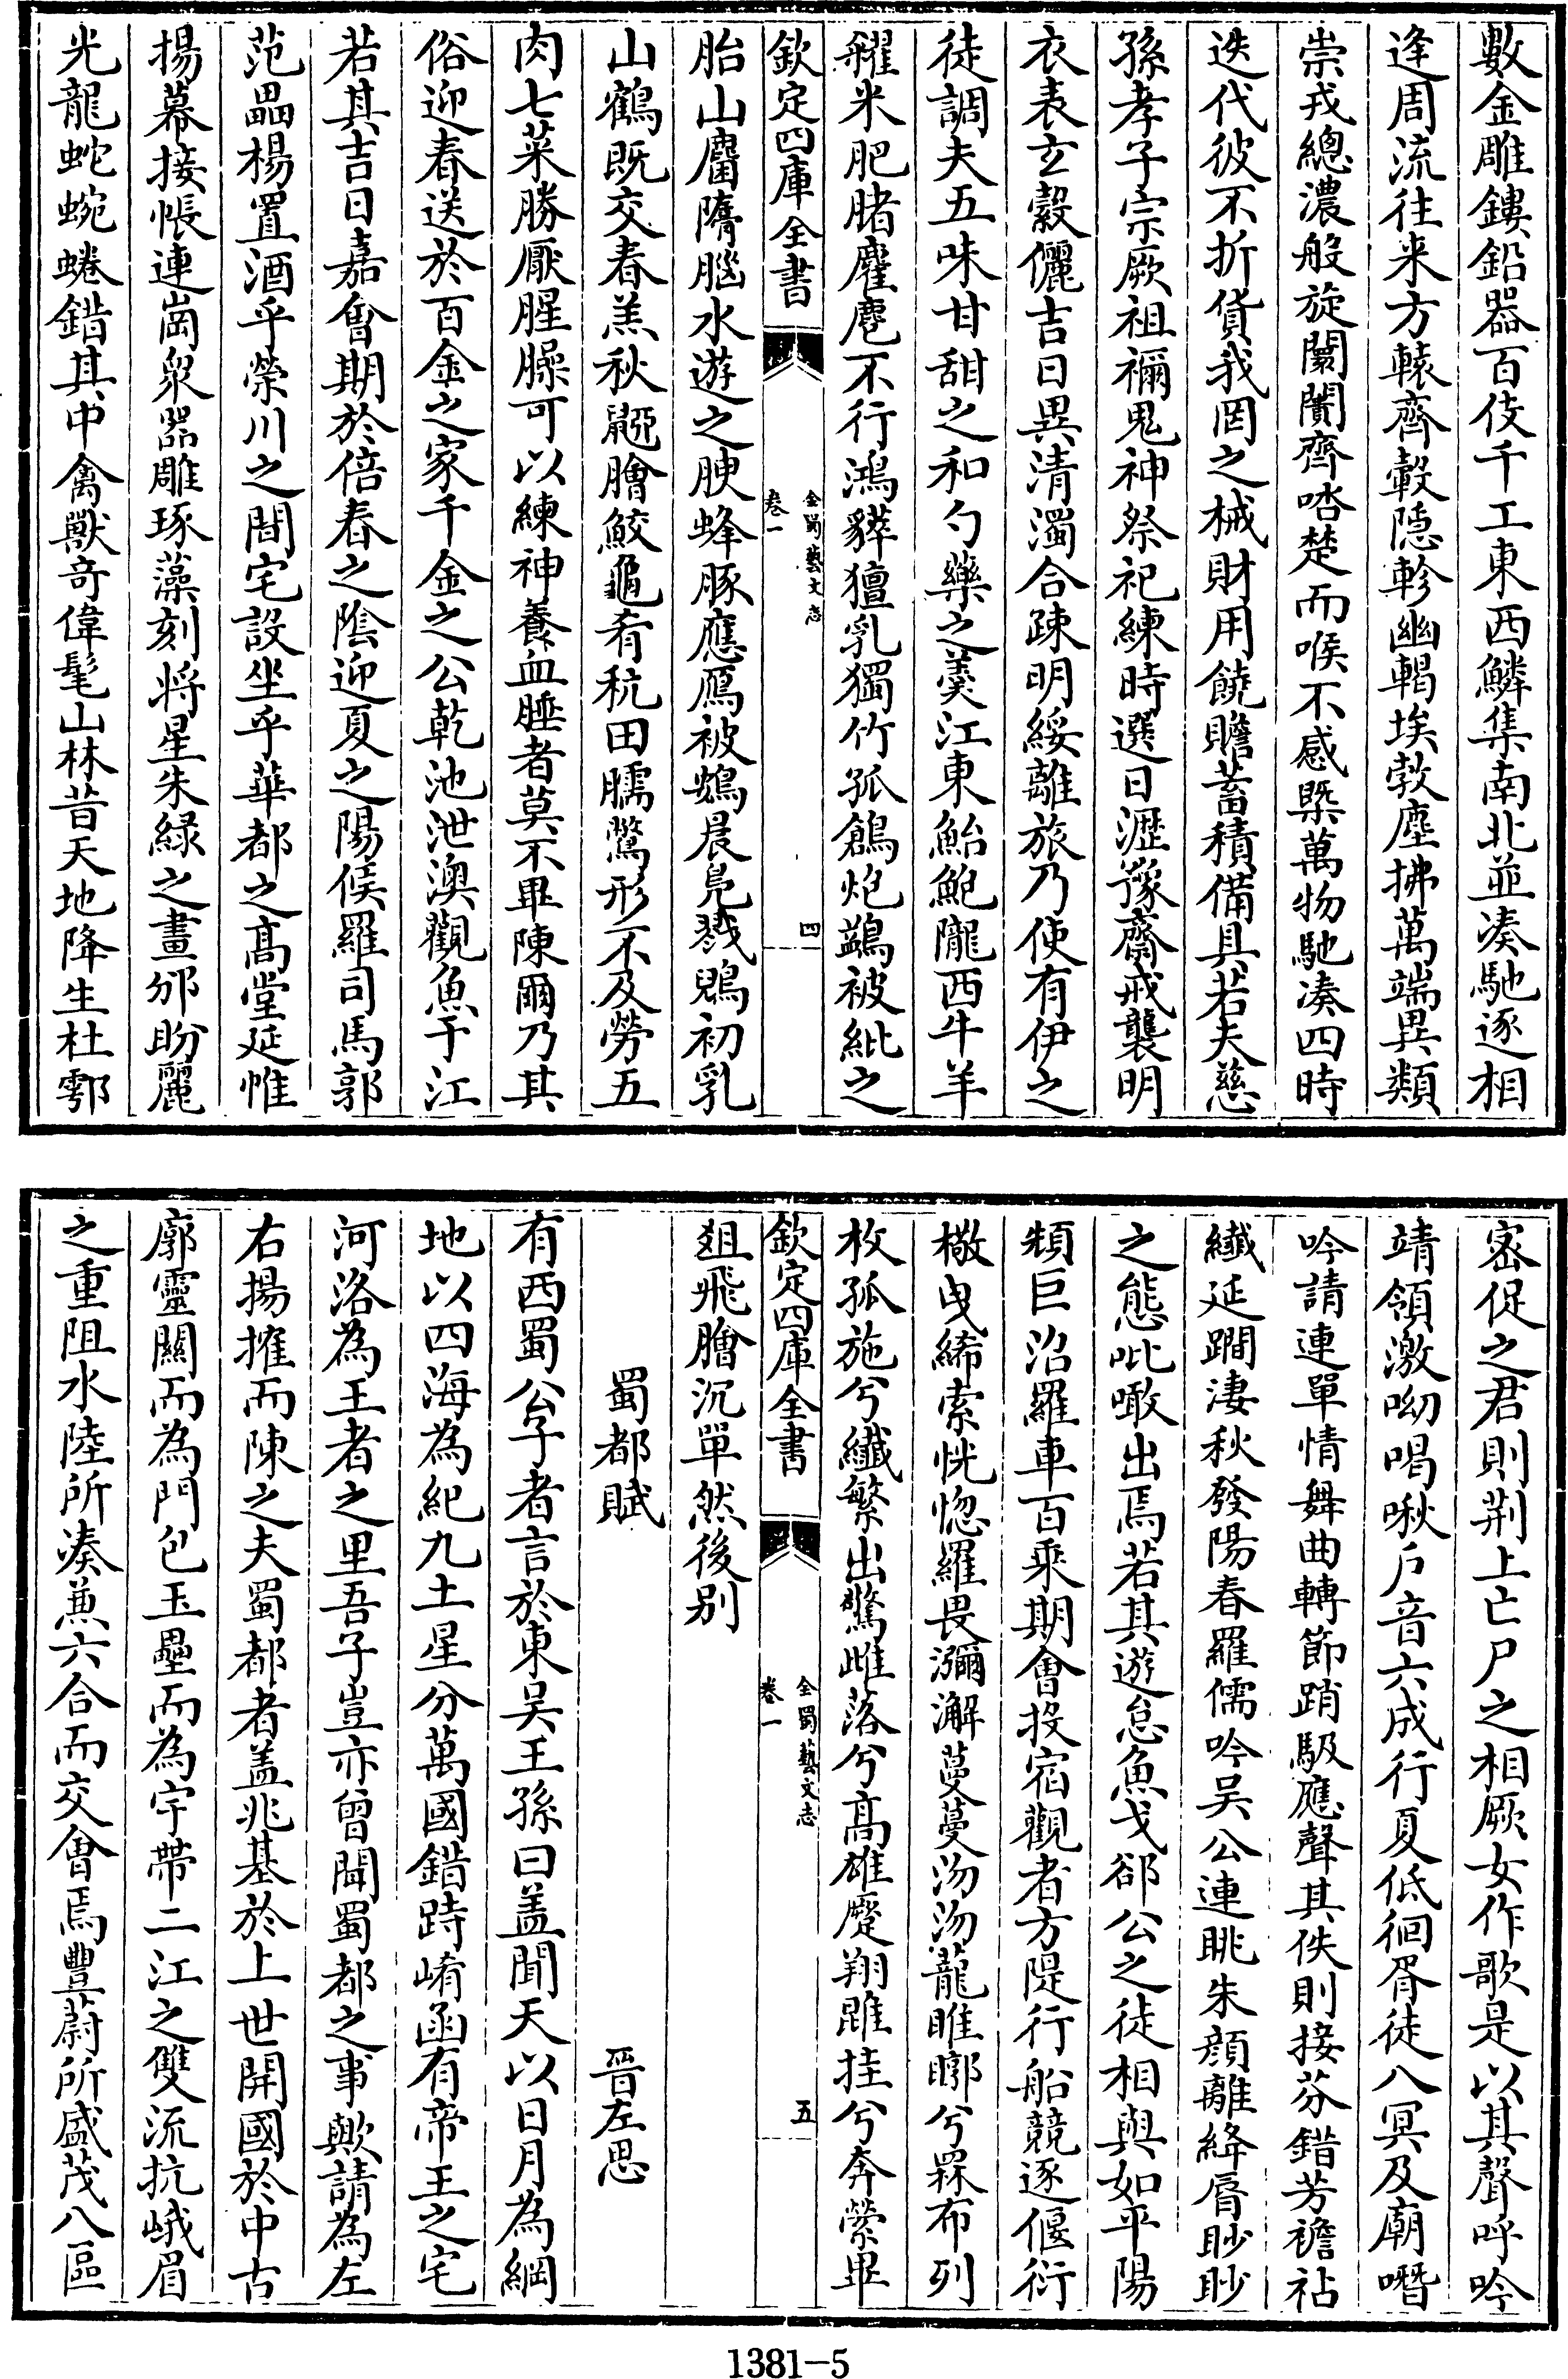 數金雕鏤鉛器百伎千工東西鱗集南北並湊馳逐相
逢周流往来方轅齊轂隐軫幽輵埃敦塵拂萬端異類
崇戎總濃般旋闤闠齊喒楚而喉不感槩萬物馳湊四時
迭代彼不折貨我罔之械財用饒贍蓄積備具若夫慈
孫孝子宗厥祖禰鬼神祭祀練時選日瀝豫齋戒襲明
衣表玄縠儷吉日異清濁合疎明綏離旅乃使有伊之
徒調夫五味甘甜之和勺藥之羹江東鮐鮑隴西牛羊
糴米肥䐗麈麀不行鴻㺉獾乳獨竹孤鶬炮鴞被紕之
欽定四庫全書
全蜀藝文志
卷一
四
胎山麕隋腦水遊之腴蜂豚應鴈被鴳晨鳧戮鶂初乳
山鶴既交春羔秋䶈膾鮻龜肴秔田臑鷩形不及勞五
肉七菜勝厭腥臊可以練神養血腄者莫不畢陳爾乃其
俗迎春送於百金之家千金之公乾池泄澳觀魚于江
若其吉日嘉會期於倍春之陰迎夏之陽侯羅司馬郭
范畾楊置酒乎滎川之閒宅設坐乎華都之髙堂延帷
揚幕接帳連崗衆器雕琢藻刻将星朱緑之畫邠盼麗
光龍蛇蜿蜷錯其中禽獸奇偉髦山林昔天地降生杜鄠
宻促之君則荆上亡尸之相厥女作歌是以其聲呼吟
靖領激呦喝啾戶音六成行夏低徊胥徒入冥及廟噆
吟請連單情舞曲轉節踃馺應聲其佚則接芬錯芳襜袩
纎延躢凄秋發陽春羅儒吟吴公連眺朱顔離絳脣眇眇
之態吡噉出焉若其遊怠魚弋郤公之徒相與如平陽
頪巨沼羅車百乗期會投宿觀者方隄行船競逐偃衍
橵曳絺索恍惚羅畏灖澥蔓蔓沕沕蘢睢㬑兮罧布列
枚孤施兮纎繁出驚雌落兮髙雄蹷翔鵾挂兮奔縈畢
欽定四庫全書
全蜀藝文志
卷一
五
爼飛膾沉單然後别
蜀都賦
晉左思
有西蜀公子者言於東吴王孫曰盖聞天以日月為綱
地以四海為紀九土星分萬國錯跱崤函有帝王之宅
河洛為王者之里吾子豈亦曾聞蜀都之事歟請為左
右揚搉而陳之夫蜀都者盖兆基於上世開國於中古
廓靈關而為門包玉壘而為宇帶二江之雙流抗峨眉
之重阻水陸所湊兼六合而交會焉豐蔚所盛茂八區
1381-5